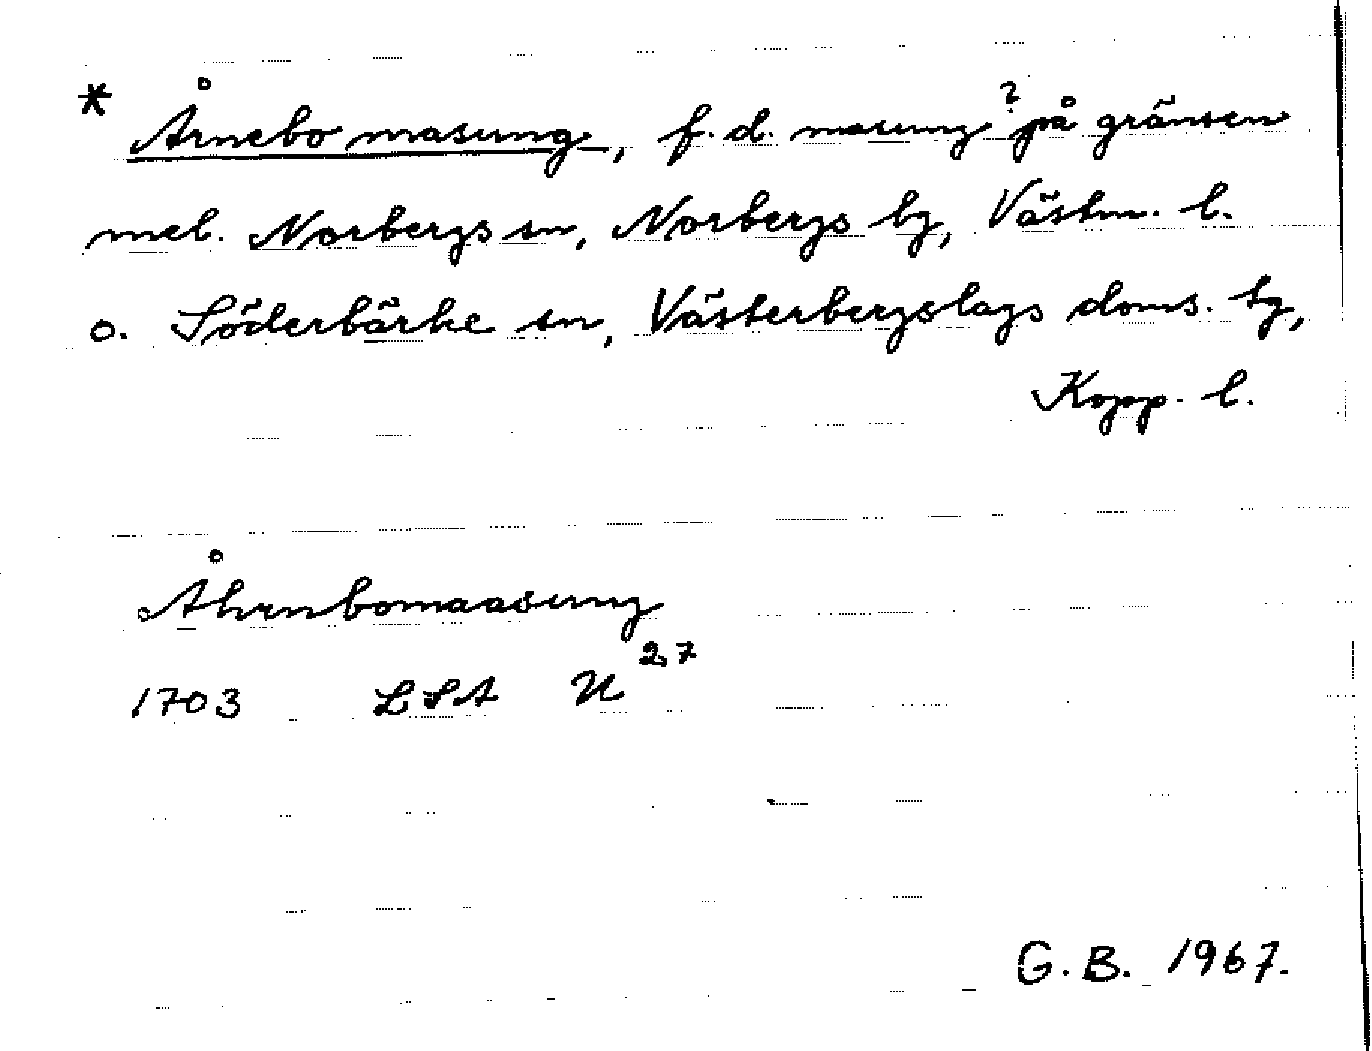 * Årnebo masung, f. d. masung? på gränsen
mel. Norbergs sn, Norbergs bg, Västm. l.
o. Söderbärke sn, Västerbergslags doms. bg,
Kopp. l.
Åhrnbomaasung
1703 LSA U 2,7
G. B. 1967.